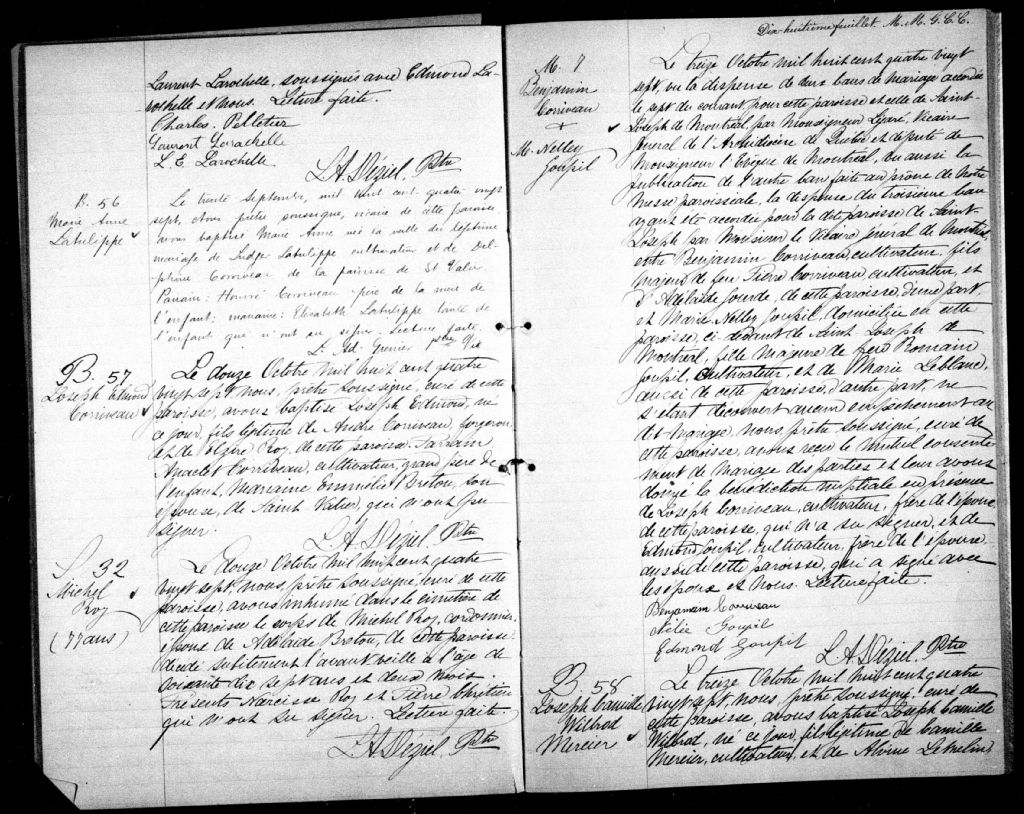 Laurent Larochelle, soussignés avec Edmond La-
rochelle et nous. Lecture faite.
Charles Pelletier
Laurent Larochelle
L. E. Larochelle
L. A. Déziel Ptre
B. 56
Marie Anne
Labulippe
Le trente Septembre, mil huit cent quatre vingt
sept, nous prêtre soussigné, vicaire de cette paroisse
avons baptisé Marie Anne née la veille du légitime
mariage de Ludger Labulippe cultivateur et de Del-
phine Corriveau de la paroisse de St Valier
Parrain: Honoré Corriveau père de la mère de
l'enfant; marraine: Elisabeth Labulippe tante de
l'enfant qui n'ont su signer. Lecture faite.
L. Ad. Grenier ptre Vic
B. 57
Joseph Edmond
Corriveau
Le douze Octobre mil huit cent quatre
vingt sept, nous, prêtre soussigné, curé de cette
paroisse, avons baptisé Joseph Edmond, né
ce jour, fils légitime de André Corriveau, forgeron
et de Elzire Roy, de cette paroisse. Parrain
Anaclet Corriveau, cultivateur, grand père de
l'enfant, Marraine Emmelie Breton, son
épouse, de Saint Valier, qui n'ont su
signer.
L. A. Déziel Ptre
S. 32
Michel
Roy
(77 ans)
Le douze Octobre mil huit cent quatre
vingt sept, nous, prêtre soussigné, curé de cette
paroisse, avons inhumé dans le cimetière de
cette paroisse le corps de Michel Roy, cordonnier,
époux de Adélaïde Breton, de cette paroisse
décédé subitement l'avant veille à l'âge de
soixante dix sept ans et deux mois
Présents Narcisse Roy et Pierre Chrétien
qui n'ont su signer. Lecture faite.
L. A. Déziel Ptre
Dix-huitième feuillet. M. M. G. C. C.
M. 7
Benjamin
Corriveau
+
M. Nelley
Goupil
Le treize Octobre mil huit cent quatre vingt
sept, vu la dispense de deux bans de mariage accordée
le sept du courant, pour cette paroisse et celle de Saint-
Joseph de Montréal, par Monseigneur Légaré, Vicaire
général de l'Archidiocèse de Québec et député de
Monseigneur l'Evêque de Montréal, vu aussi la
publication de l'autre ban faite au prône de notre
Messe paroissiale, la dispense du troisième ban
ayant été accordée pour la dite paroisse de Saint-
Joseph par Monsieur le Vicaire général de Montréal,
entre Benjamin Corriveau, cultivateur, fils
majeur de feu Pierre Corriveau, cultivateur, et
d'Adelaide Gourde, de cette paroisse, d'une part
et Marie Nelley Goupil, domiciliée en cette
paroisse, ci-devant de Saint Joseph de
Montréal, fille majeure de feu Romain
Goupil, cultivateur, et de Marie Leblanc,
aussi de cette paroisse, d'autre part, ne
s'étant découvert aucun empêchement au
dit mariage, nous, prêtre soussigné, curé de
cette paroisse, avons reçu le mutuel consente-
ment de mariage des parties et leur avons
donné la bénédiction nuptiale en présence
de Joseph Corriveau, cultivateur, frère de l'époux
de cette paroisse, qui n'a su signer, et de
Edmond Goupil, cultivateur, frère de l'épouse
aussi de cette paroisse, qui a signé avec
les époux et nous. Lecture faite.
Benjamin Corriveau
Nélée Goupil
Edmond Goupil
L. A. Déziel Ptre
B. 58
Joseph Camille
Wilbrod
Mercier
Le treize Octobre mil huit cent quatre
vingt sept, nous, prêtre soussigné, curé de
cette paroisse, avons baptisé Joseph Camille
Wilbrod, né ce jour, fils légitime de Camille
Mercier, cultivateur, et de Alvine Lemelin